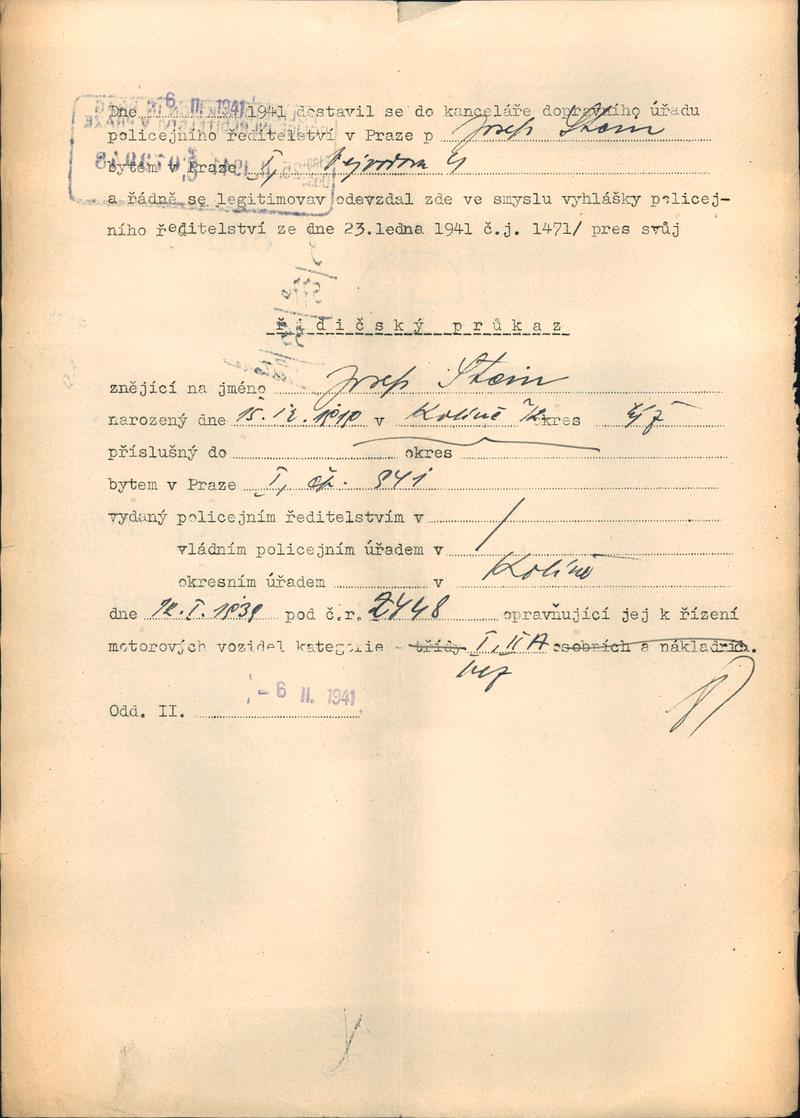 Dne - 6 II. 1941 1941 dostavil se do kanceláře dopravního úřadu
policejního ředitelství v Praze p Josef Stein
bytem v Praze I,
a řádně se legitimovav odevzdal zde ve smyslu vyhlášky policej-
ního ředitelství ze dne 23.ledna 1941 č.j. 1471/ pres svůj
řidičský průkaz
znějící na jméno Josef Stein
narozený dne v Kolíně okres
příslušný do okres
bytem v Praze I, čp. 941
vydaný policejním ředitelstvím v /
vládním policejním úřadem v
okresním úřadem v Kolíně
dne 12.I.1939 pod č.r. 2448 opravňující jej k řízení
motorových vozidel kategorie - třídy I, II A osobních a nákladních.
Odd. II. - 6 II. 1941